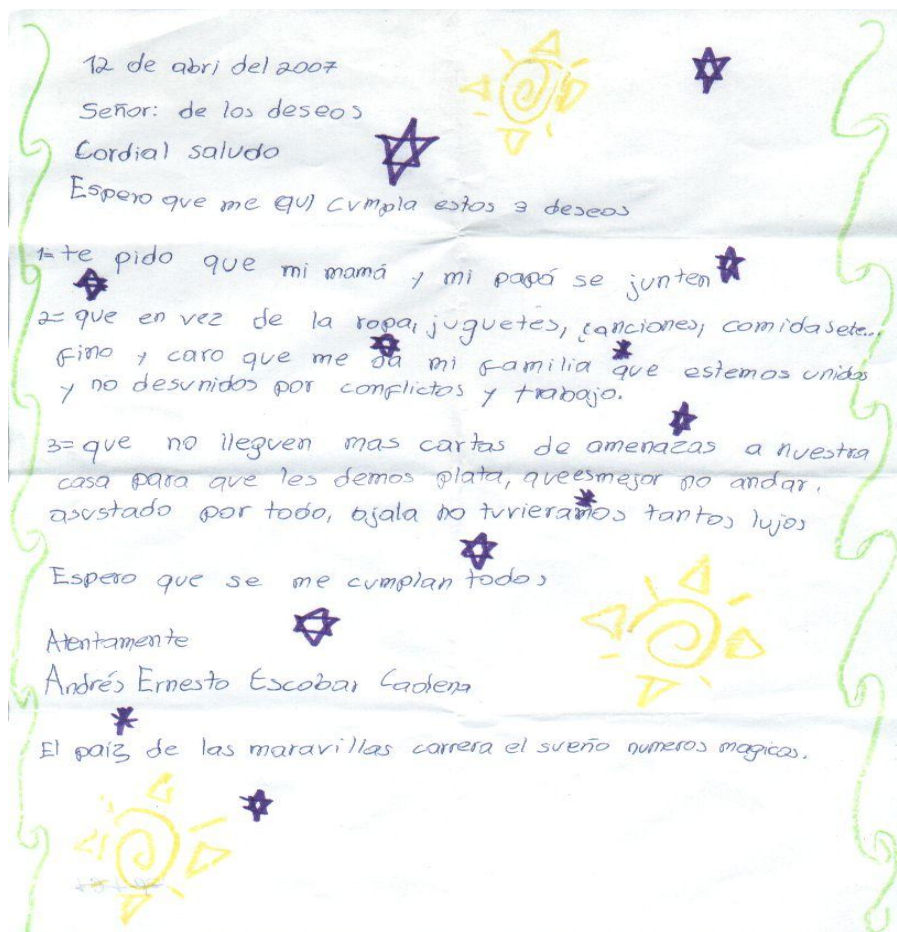 12 de abri del 2007
Señor: de los deseos
Cordial saludo
Espero que me cumpla estos 3 deseos
1= te pido que mi mamá y mi papá se junten
2= que en vez de la ropa, juguetes, canciones, comidas etc...
fino y caro que me da mi familia que estemos unidos
y no desunidos por conflictos y trabajo.
3= que no lleguen mas cartas de amenazas a nuestra
casa para que les demos plata, queesmejor no andar.
asustado por todo, ojala no tuvieramos tantos lujos
Espero que se me cumplan todos
Atentamente
Andrés Ernesto Escobar Cadena
El paíz de las maravillas carrera el sueño numeros magicos.